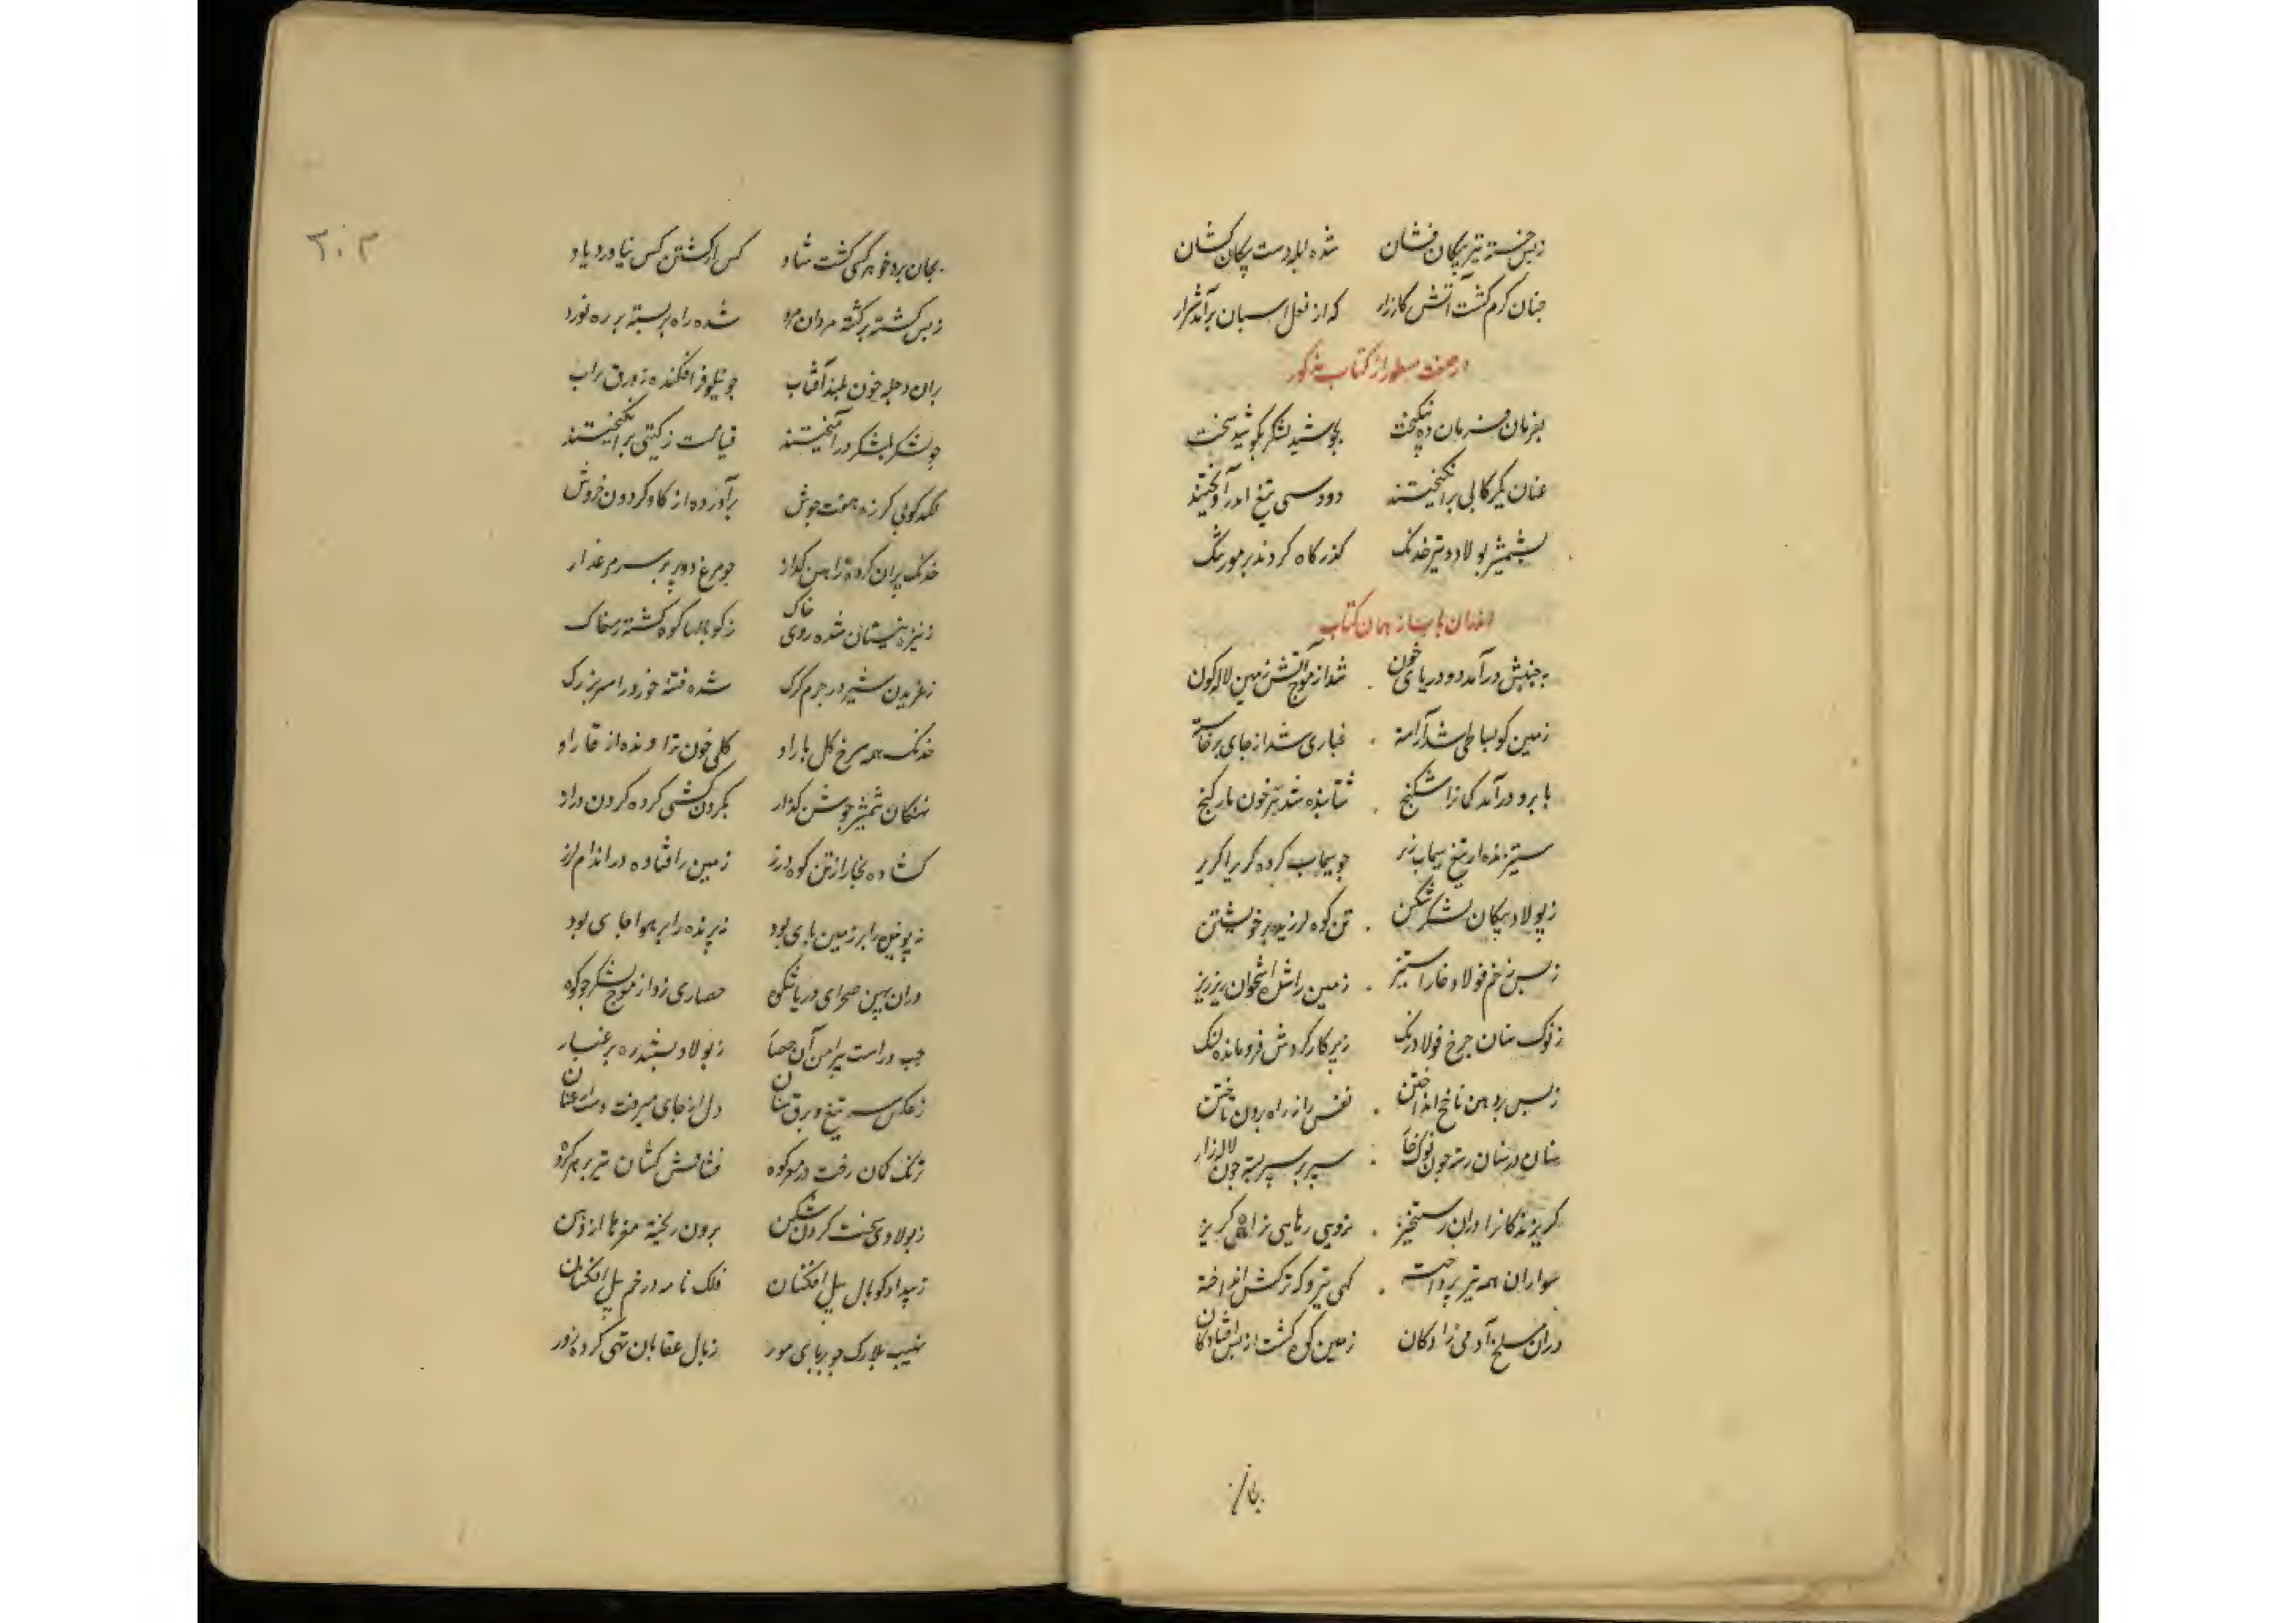 زبس خسته تیر پیکان فشان شده لابد دست پیکان کشان
چنان گرم گشت آتش کارزار که از نعل اسبان برآمد شرار
در صفت مسطور از کتاب مذکور
بفرمان فرمان ده نیکبخت بجوشید لشکر بکوشید سخت
عنان یکرکابی برانگیختند دودستی بتیغ اندرآویختند
بشمشیر پولاد و تیر خدنگ گذرگاه کردند بر مور تنگ
از همان کتاب
به جنبش درآمد دو دریای خون شد از موج آتش زمین لاله گون
زمین کو بساطی شد آراسته غباری شد از جای برخاسته
بابرو درآمد کمان را شکنج شتابنده شد تیر چون مار گنج
ستیزنده از تیغ سیماب ریز چو سیماب کرده گریزا گریز
زپولاد پیکان لشکر شکن تن کوه لرزید بر خویشتن
زبس زخم فولاد خارا ستیز زمین را شده استخوان ریز ریز
زنوک سنان چرخ فولاد رنگ زپرکار گردش فرومانده لنگ
زبس بر دهن ناخج انداختن نفس را نه راه برون تاختن
سنان در سنان رسته چون نوک خار سپر بر سپر بسته چون لاله زار
گریزندگان را دران رستخیز نه روی رهایی نه راه گریز
سواران همه تیر پرداخته گهی تیر و گه ترکش انداخته
دران مسلخ آدمی زادگان زمین کوه گشت از بس افتادگان
بجان
۲۰۳
بجان برد خود هرکسی گشت شاد کس از کشتن کس نیاورد یاد
زبس کشته بر کشته مردان مرد شده راه بربسته بر ره نورد
بران دجله خون بلند آفتاب چو نیلوفر افکنده زورق براب
چو لشکر بلشکر درآمیختند قیامت زگیتی برانگیختند
لگدکوبی گرزه هفت جوش برآورده از گاو گردون خروش
خدنگ پران کرده ز آهن گذار چو مرغ دوپر بر سر مرغزار
زنیزه نیستان شده روی خاک زکوپالها کوه گشته مغاک
زغریدن شیر در چرم گرگ شده فتنه خرد را سر بزرگ
خدنگ همه سرخ گل بار او گلی خون تراونده از خار او
نهنگان شمشیر جوشن گذار بگردن کشی کرده گردن دراز
گشاده بخار از تن کوه درز زمین را فتاده در اندام لرز
نه پوینده را بر زمین جای بود نه پرنده را بر هوا جای بود
دران پهن صحرای دریا شکوه حصاری زد از موج لشکر چو کوه
چپ و راست پیرامن آن حصار زپولاد بستند ره بر غبار
زعکس سر تیغ و برق سنان دل از جای میرفت و دست از عنان
ترنگ کمان رفت در مغز کوه فشافش کنان تیر بر هر گروه
زپولاد سخت گردن شکن برون ریخته مغزها از دهن
زبیداد کوپال پیل افکنان فلک نامد در خم پیل افکنان
نهیب بلارک چو پرهای مور زبال عقابان تهی کرده زور